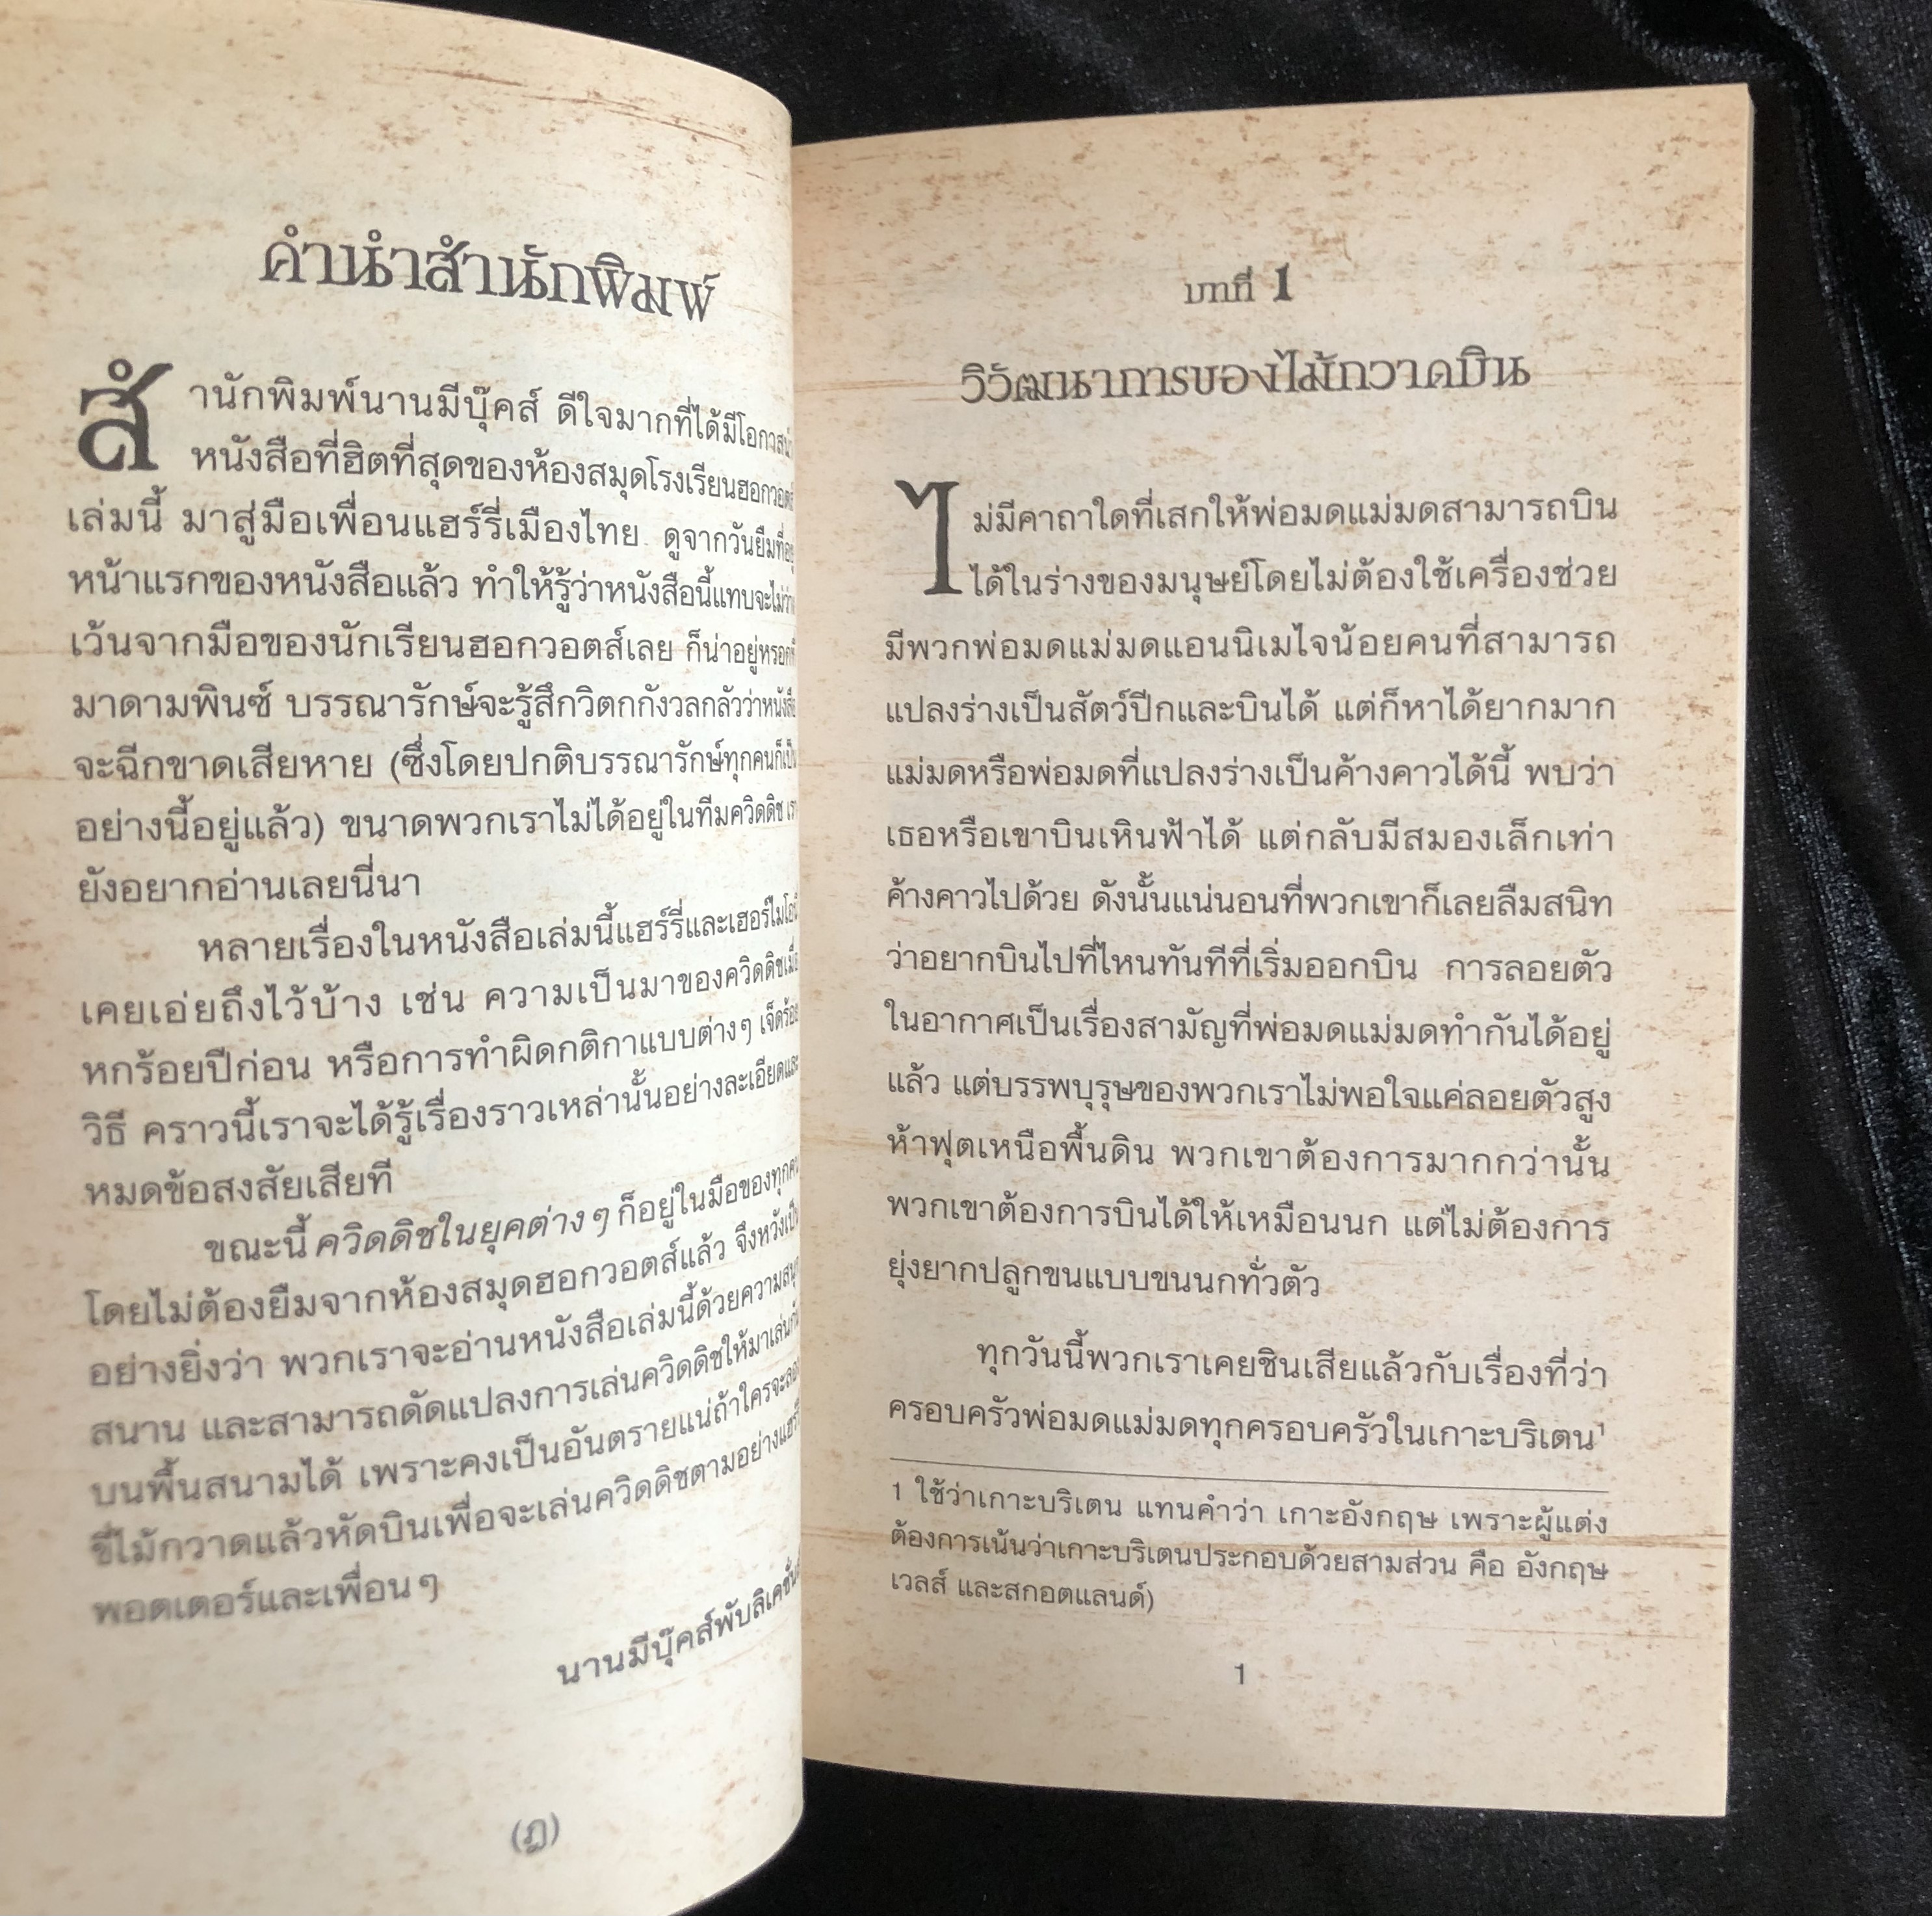 คำนำสำนักพิมพ์
สำนักพิมพ์นานมีบุ๊คส์ ดีใจมากที่ได้มีโอกาส
หนังสือที่ฮิตที่สุดของห้องสมุดโรงเรียนฮอกวอตส์
เล่มนี้ มาสู่มือเพื่อนแฮร์รี่เมืองไทย ดูจากวันยืมที่
หน้าแรกของหนังสือแล้ว ทำให้รู้ว่าหนังสือนี้แทบจะไม่
เว้นจากมือของนักเรียนฮอกวอตส์เลย ก็น่าอยู่หรอก
มาดามพินซ์ บรรณารักษ์จะรู้สึกวิตกกังวลกลัวว่าหนังสือ
จะฉีกขาดเสียหาย (ซึ่งโดยปกติบรรณารักษ์ทุกคนก็เป็น
อย่างนี้อยู่แล้ว) ขนาดพวกเราไม่ได้อยู่ในทีมควิดดิช
ยังอยากอ่านเลยนี่นา
หลายเรื่องในหนังสือเล่มนี้แฮร์รี่และเฮอร์ไมโอนี่
เคยเอ่ยถึงไว้บ้าง เช่น ความเป็นมาของควิดดิชเมื่อ
หกร้อยปีก่อน หรือการทำผิดกติกาแบบต่างๆ เจ็ดร้อย
วิธี คราวนี้เราจะได้รู้เรื่องราวเหล่านั้นอย่างละเอียดและ
หมดข้อสงสัยเสียที
ขณะนี้ ควิดดิชในยุคต่างๆ ก็อยู่ในมือของทุกคน
โดยไม่ต้องยืมจากห้องสมุดฮอกวอตส์แล้ว จึงหวังเป็น
อย่างยิ่งว่า พวกเราจะอ่านหนังสือเล่มนี้ด้วยความสนุก
สนาน และสามารถดัดแปลงการเล่นควิดดิชให้มาเล่นกัน
บนพื้นสนามได้ เพราะคงเป็นอันตรายแน่ถ้าใครจะลอง
ขี่ไม้กวาดแล้วหัดบินเพื่อจะเล่นควิดดิชตามอย่างแฮร์รี่
พอตเตอร์และเพื่อนๆ
นานมีบุ๊คส์พับลิเคชั่นส์
(ฎ)
บทที่ 1
วิวัฒนาการของไม้กวาดบิน
ไม่มีคาถาใดที่เสกให้พ่อมดแม่มดสามารถบิน
ได้ในร่างของมนุษย์โดยไม่ต้องใช้เครื่องช่วย
มีพวกพ่อมดแม่มดแอนนิเมไจน้อยคนที่สามารถ
แปลงร่างเป็นสัตว์ปีกและบินได้ แต่ก็หาได้ยากมาก
แม่มดหรือพ่อมดที่แปลงร่างเป็นค้างคาวได้นี้ พบว่า
เธอหรือเขาบินเหินฟ้าได้ แต่กลับมีสมองเล็กเท่า
ค้างคาวไปด้วย ดังนั้นแน่นอนที่พวกเขาก็เลยลืมสนิท
ว่าอยากบินไปที่ไหนทันทีที่เริ่มออกบิน การลอยตัว
ในอากาศเป็นเรื่องสามัญที่พ่อมดแม่มดทำกันได้อยู่
แล้ว แต่บรรพบุรุษของพวกเราไม่พอใจแค่ลอยตัวสูง
ห้าฟุตเหนือพื้นดิน พวกเขาต้องการมากกว่านั้น
พวกเขาต้องการบินได้ให้เหมือนนก แต่ไม่ต้องการ
ยุ่งยากปลูกขนแบบขนนกทั่วตัว
ทุกวันนี้พวกเราเคยชินเสียแล้วกับเรื่องที่ว่า
ครอบครัวพ่อมดแม่มดทุกครอบครัวในเกาะบริเตน¹
1 ใช้ว่าเกาะบริเตน แทนคำว่า เกาะอังกฤษ เพราะผู้แต่ง
ต้องการเน้นว่าเกาะบริเตนประกอบด้วยสามส่วน คือ อังกฤษ
เวลส์ และสกอตแลนด์)
1